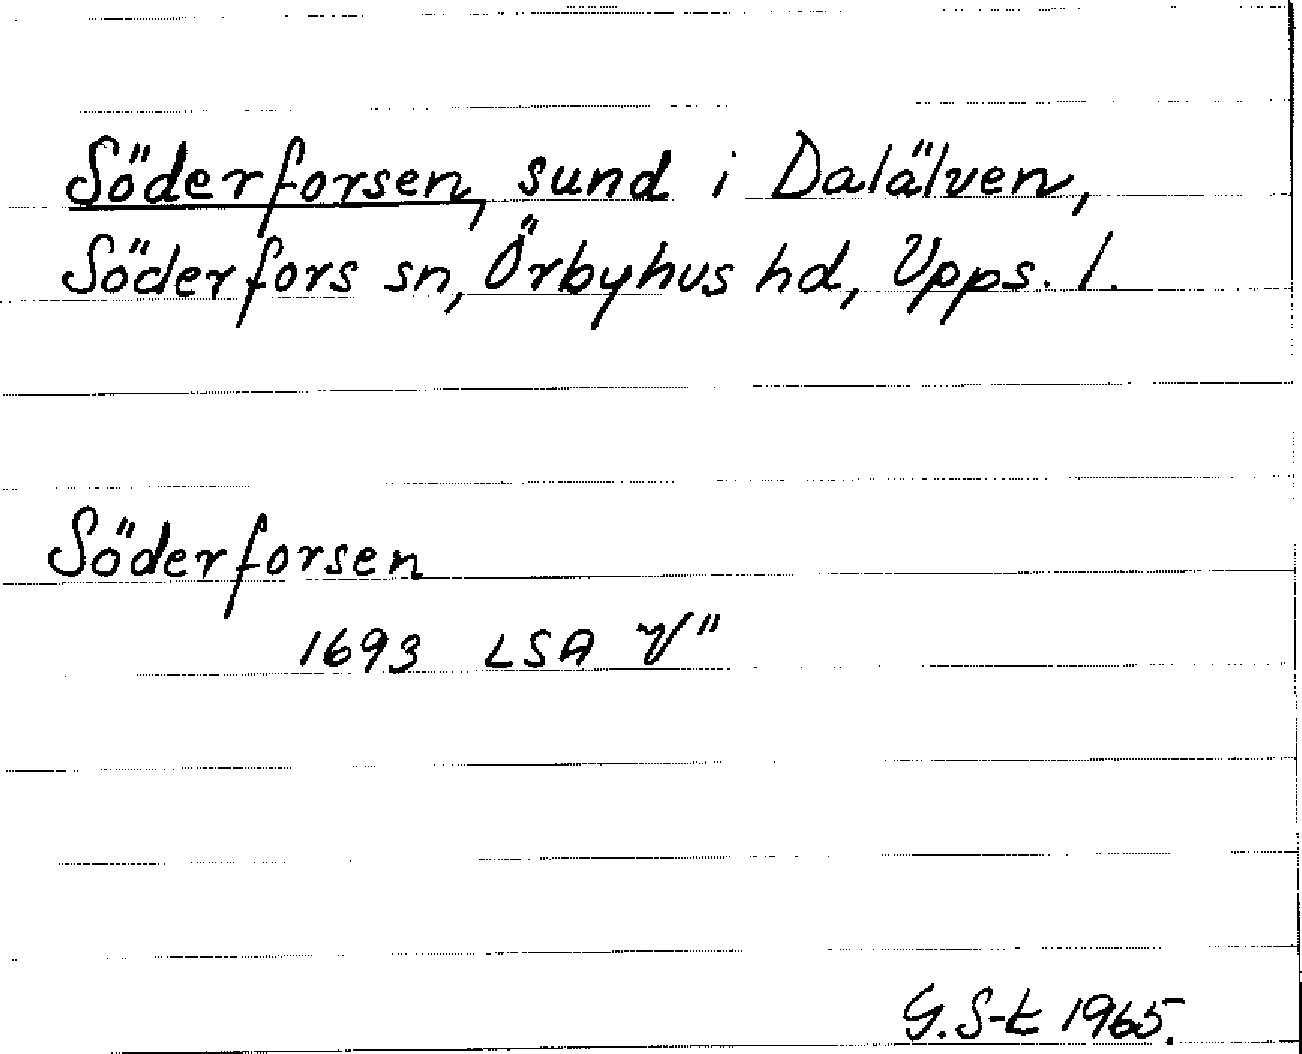 Söderforsen, sund i Dalälven,
Söderfors sn, Örbyhus hd, Upps. l.
Söderforsen
1693 LSA
G. S-t 1965.